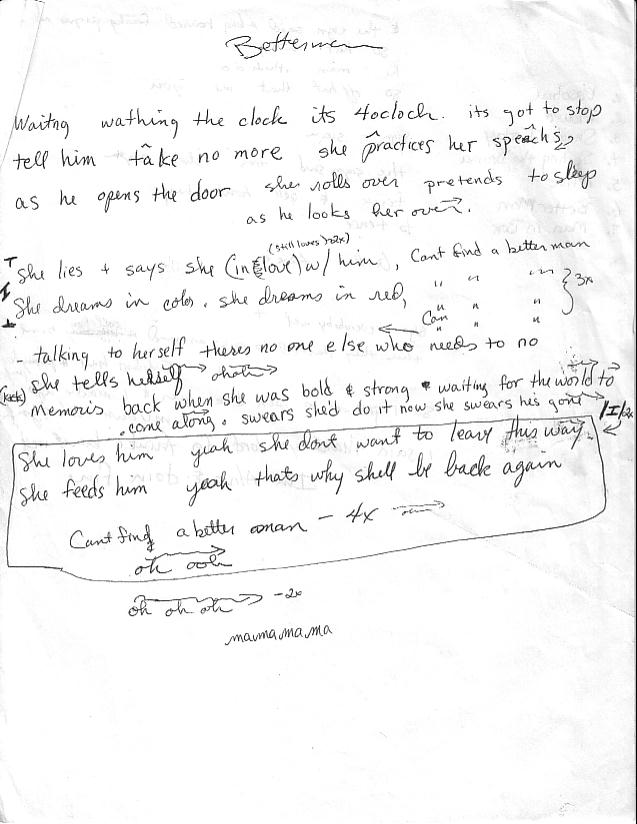 Betterman
Waitng wathing the clock its 4ocloch. its got to stop
tell him take no more she practices her speachs
as he opens the door she rolls over pretends to sleep
as he looks her over.
(still loves)-2x)
She lies + says she (in love) w/ him, Cant find a better man
She dreams in color. she dreams in red, " " " 3x
Can " "
- talking to herself theres no one else who needs to no
she tells herself ohoh
(kick) Memoris back when she was bold & strong waiting for the world to
. come along. swears she'd do it now she swears he's gone /I/2x
She loves him yeah she dont want to leave this way.
She feeds him yeah thats why shell be back again
Cant find a better man - 4x
oh ooh
oh oh oh -2x
mamamama